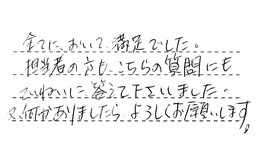 全てにおいて満足でした。
担当者の方も、こちらの質問にも
ていねいに答えて下さいました。
又何かありましたらよろしくお願いします。